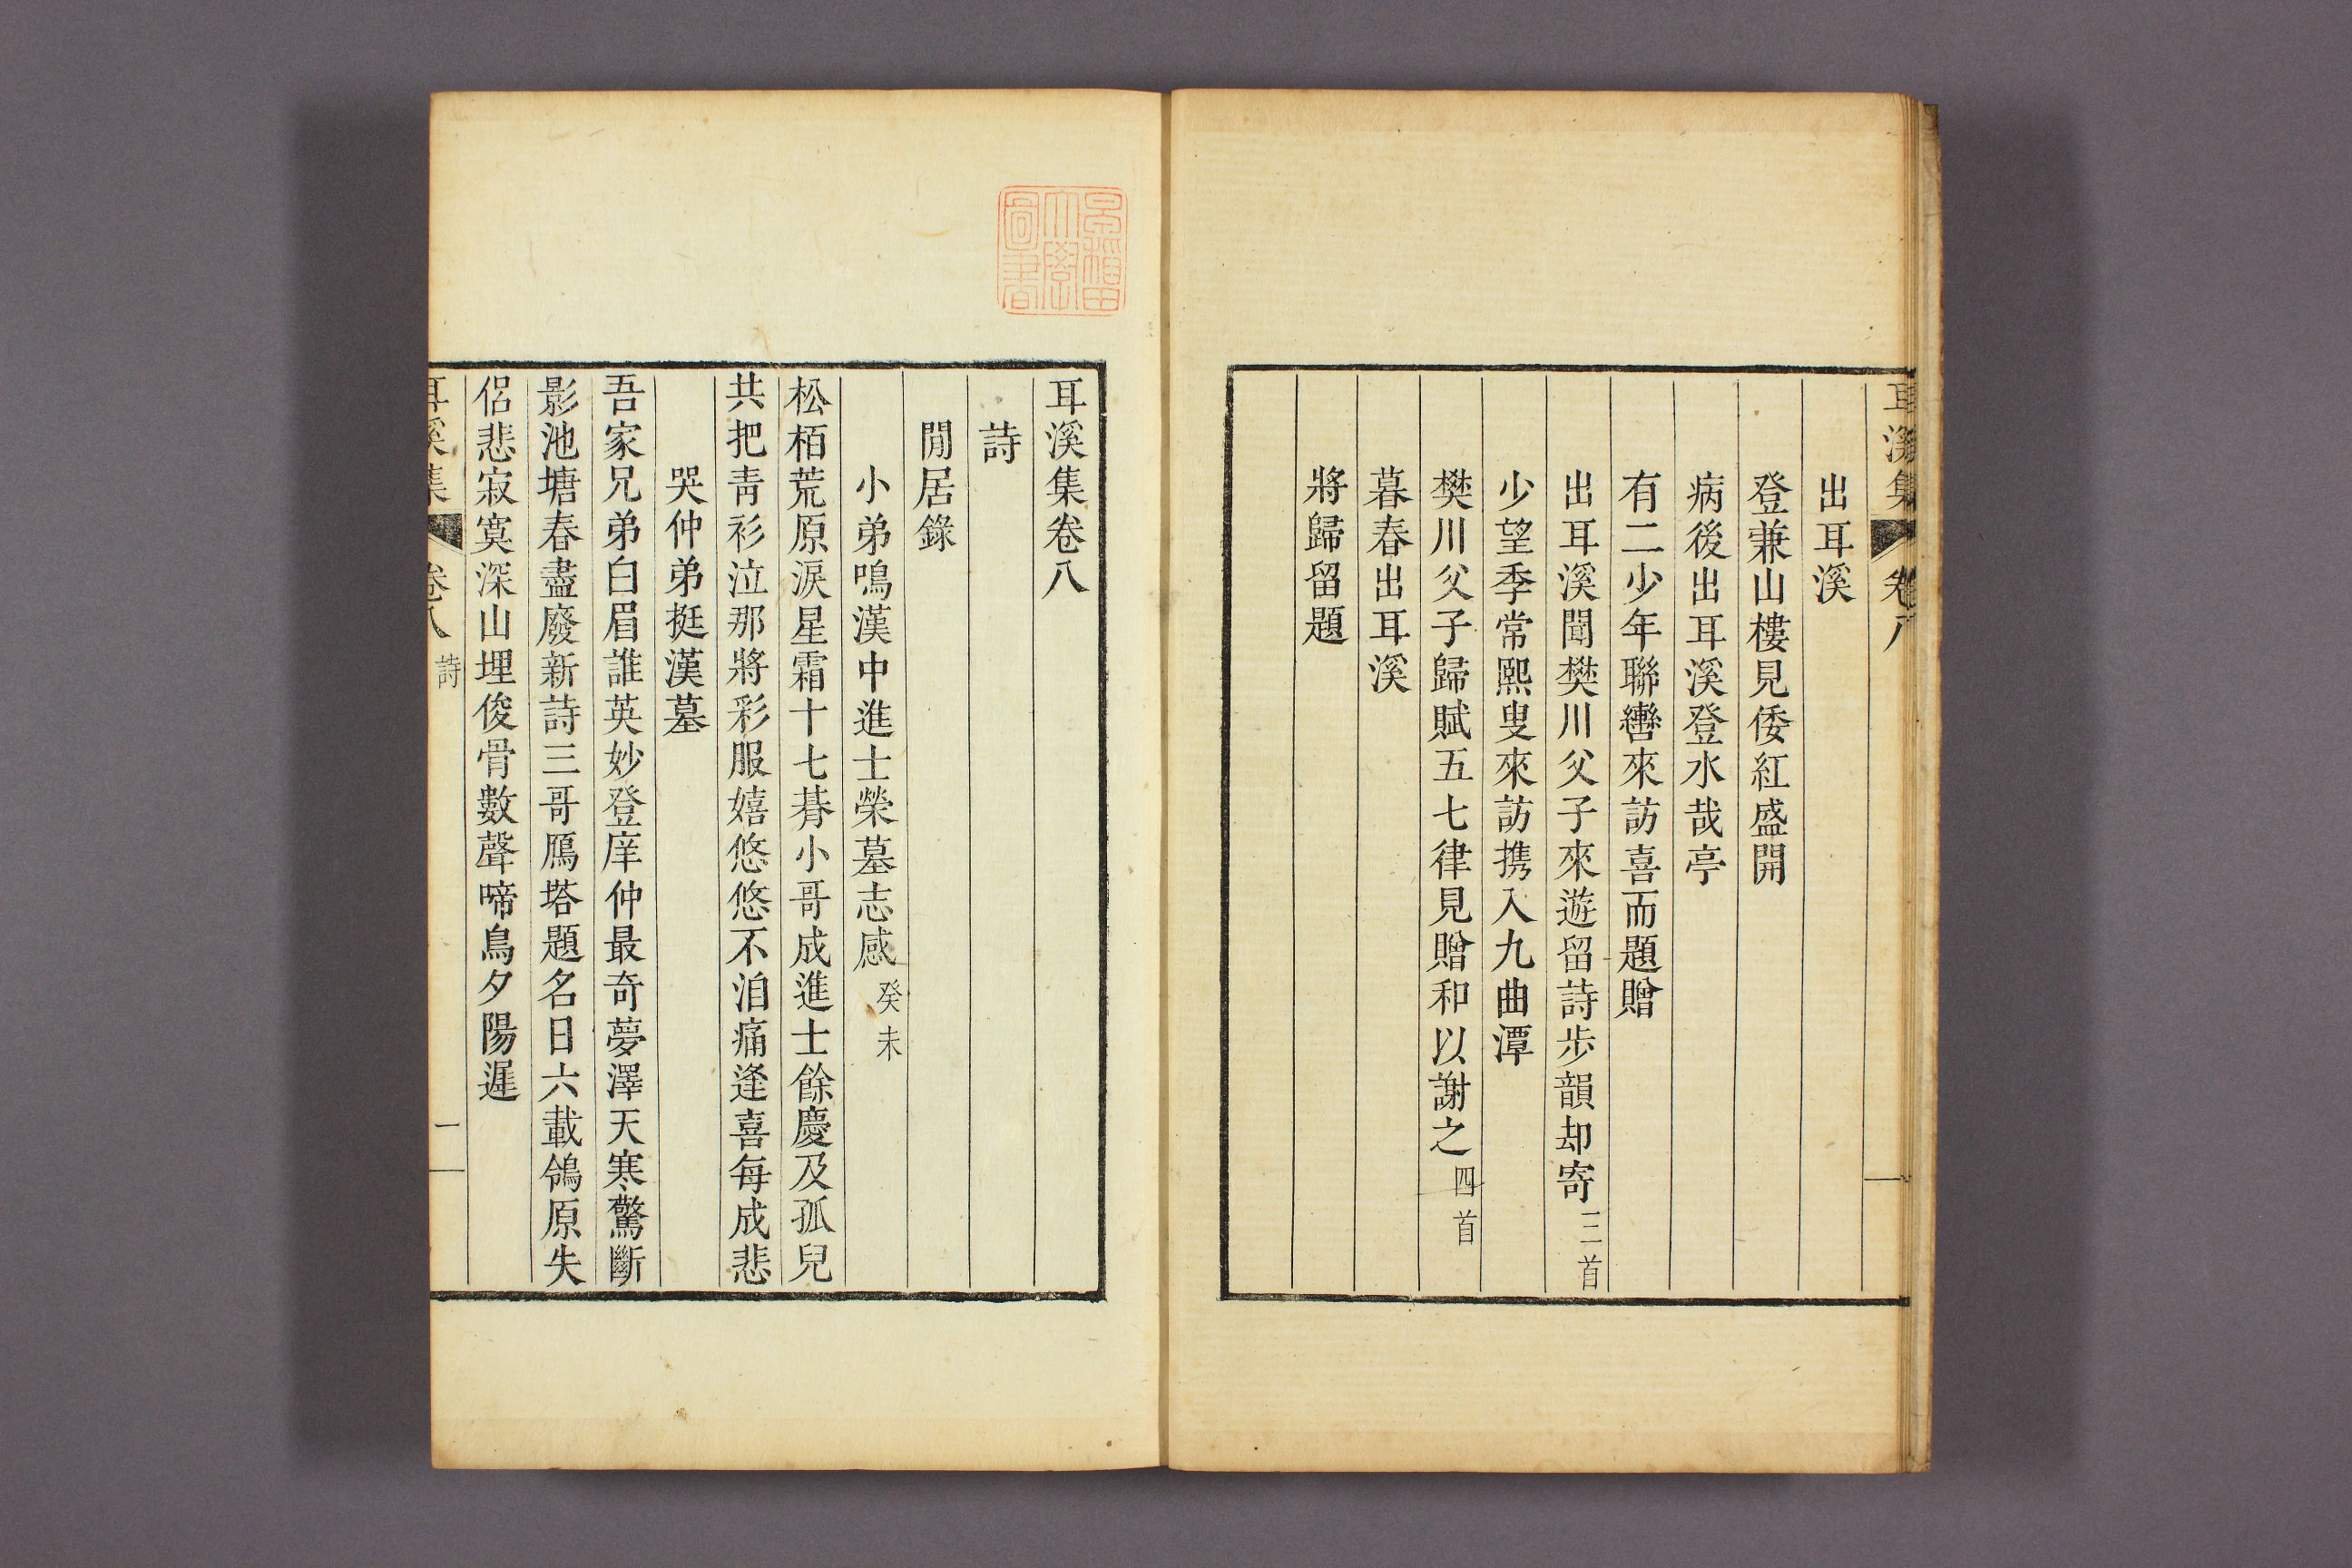 耳溪集 卷八
出耳溪
登兼山樓見倭紅盛開
病後出耳溪登水哉亭
有二少年聯轡來訪喜而題贈
出耳溪聞樊川父子來遊留詩步韻却寄 三首
少望季常熙叟來訪携入九曲潭
樊川父子歸賦五七律見贈和以謝之 四首
暮春出耳溪
將歸留題
耳溪集卷八
詩
閒居錄
小弟鳴漢中進士榮墓志感 癸未
松栢荒原淚星霜十七朞小哥成進士餘慶及孤兒
共把靑衫泣那將彩服嬉悠悠不洎痛逢喜每成悲
哭仲弟挺漢墓
吾家兄弟白眉誰英妙登庠仲最奇夢澤天寒驚斷
影池塘春盡廢新詩三哥鴈塔題名日六載鴒原失
侶悲寂寞深山埋俊骨數聲啼鳥夕陽遲
耳溪集 卷八 詩 一
早稻田
大學
圖書